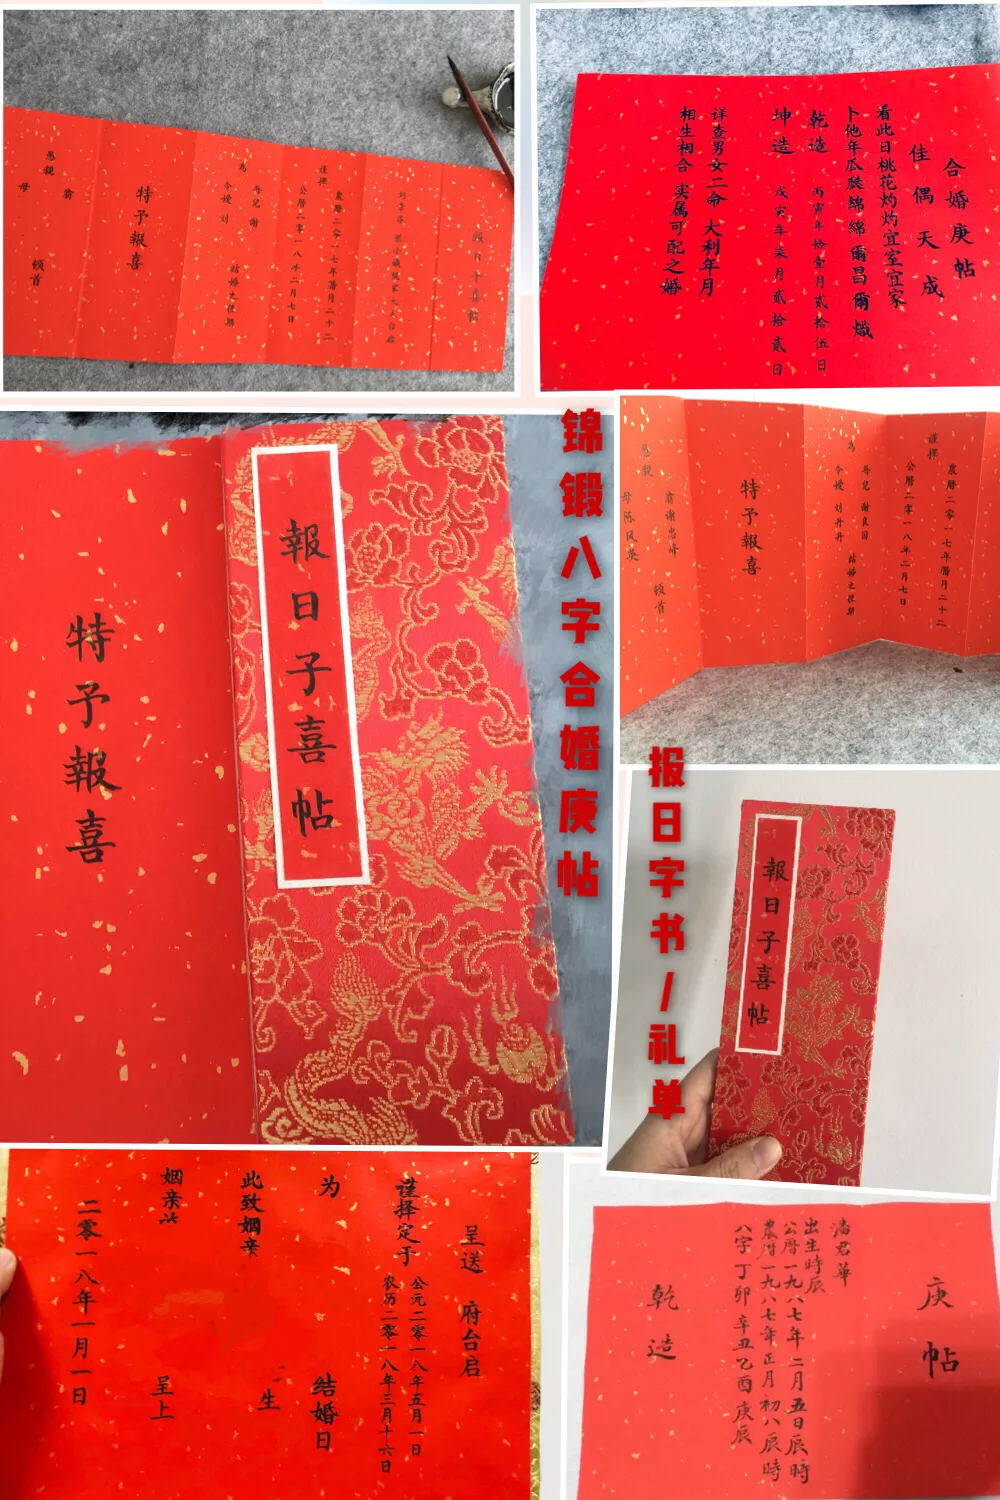 報日子喜帖
謹擇
農曆二零一七年腊月二十二
公曆二零一八年二月七日
為
吾兒 謝
令嫒 刘
結婚之佳期
特予報喜
愚親
翁
母
頓首
合婚庚帖
佳偶天成
看此日桃花灼灼宜室宜家
卜他年瓜瓞綿綿爾昌爾熾
乾造 丙寅年拾壹月貳拾伍日
坤造 戊寅年柒月貳拾貳日
详查男女二命 大利年月
相生相合 实属可配之婚
錦鍛八字合婚庚帖
報日子喜帖
特予報喜
謹擇
農曆二零一七年腊月二十二
公曆二零一八年二月七日
為
吾兒 謝良国
令嫒 刘丹丹
結婚之佳期
特予報喜
愚親
翁谢忠峰
母陈凤英
頓首
报日字书/礼单
報日子喜帖
呈送 府台启
谨择定于
公元二零一八年五月一日
农历二零一八年三月十六日
为
结婚日
生
此致姻亲
姻亲
呈上
二零一八年一月一日
庚帖
潘君華
出生時辰
公曆一九八七年二月五日辰時
農曆一九八七年正月初八辰時
八字丁卯辛丑乙酉庚辰
乾造